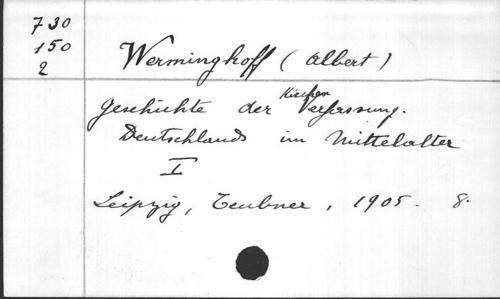 730
150
2
Werminghoff (Albert)
Geschichte der Kirchen Verfassung.
Deutschlands im Mittelalter
I
Leipzig, Teubner, 1905. 8.